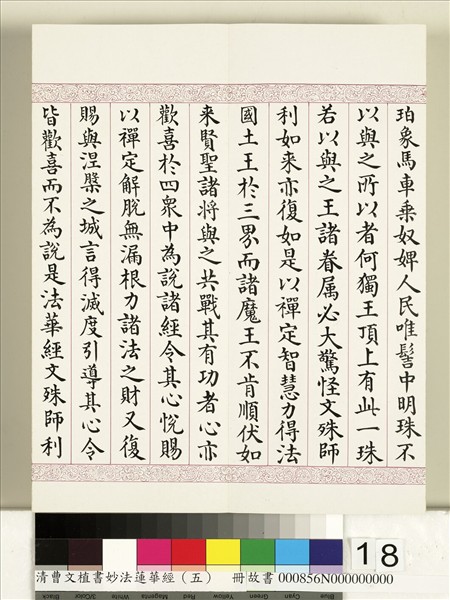 珀象馬車乘奴婢人民唯髻中明珠不
以與之所以者何獨王頂上有此一珠
若以與之王諸眷属必大驚怪文殊師
利如来亦復如是以禪定智慧力得法
國土王於三界而諸魔王不肯順伏如
来賢聖諸將與之共戰其有功者心亦
歡喜於四衆中為說諸經令其心悅賜
以禪定解脫無漏根力諸法之財又復
賜與涅槃之城言得滅度引導其心令
皆歡喜而不為說是法華經文殊師利
18
清曹文植書妙法蓮華經（五） 冊故書 000856N000000000
Black 3/Color White Magenta Red Yellow Green Cyan Blue